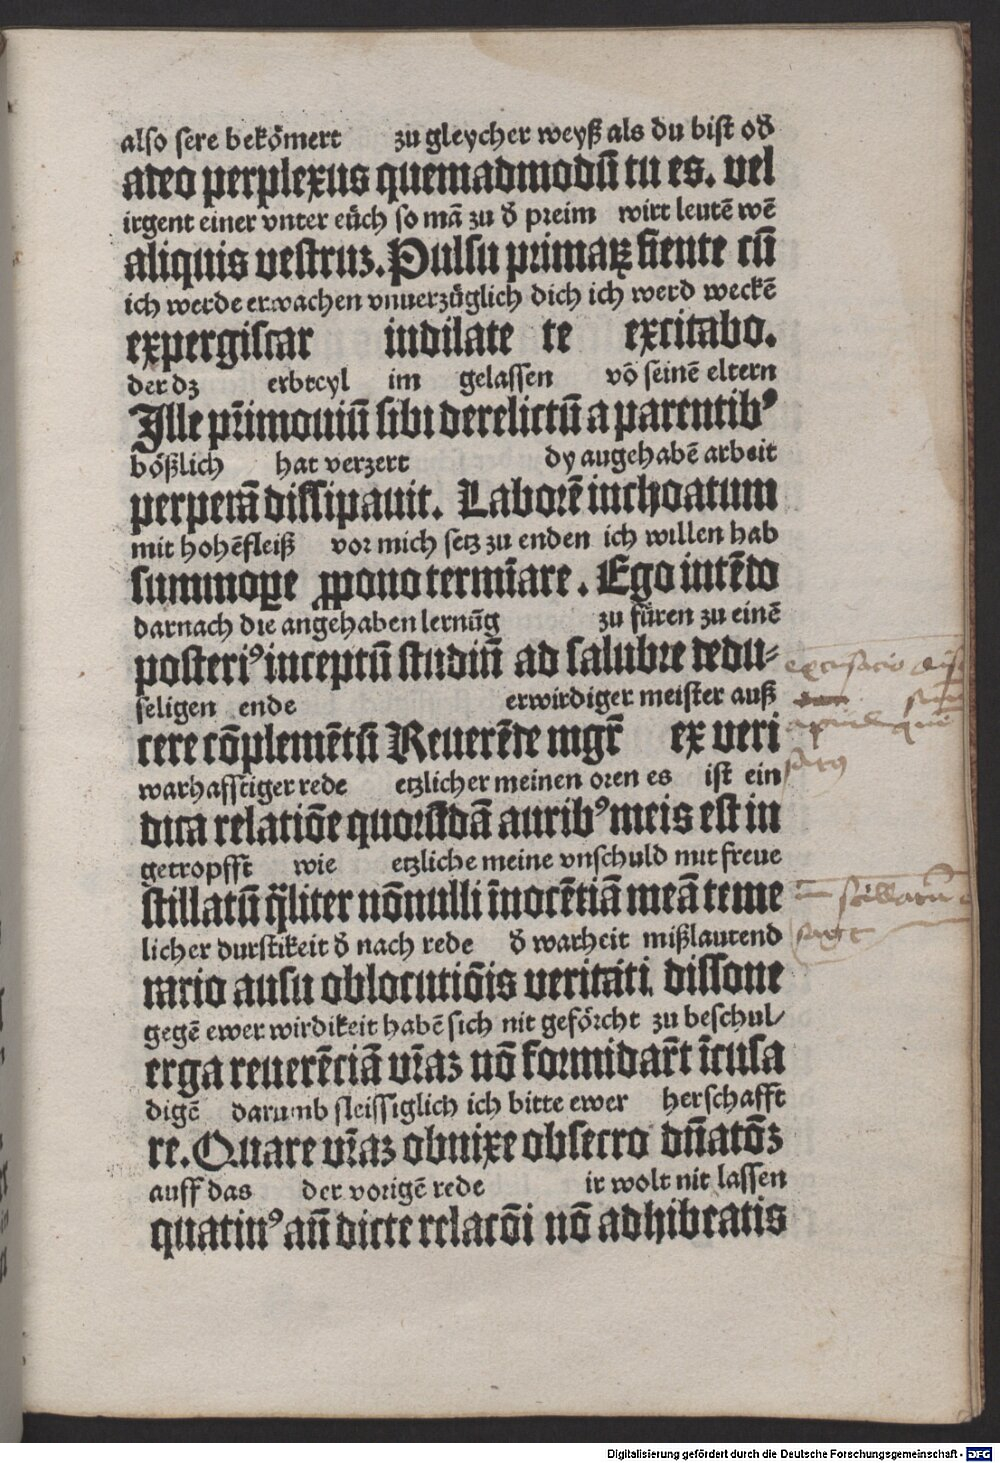 also sere bekömert zu gleycher weyß als du bist oð
adeo perplexus quemadmodū tu es. vel
irgent einer vnter eüch so mā zu ð preim wirt leutē wē
aliquis vestruꝫ. Pulsu primaꝝ fiente cū
ich werde erwachen vnuerzüglich dich ich werd weckē
expergiscar indilate te excitabo.
der dz erbteyl im gelassen vō seinē eltern
Ille pr̄imoniū sibi derelictū a parentibꝰ
bößlich hat verzert dy angehabē arbeit
perperā dissipauit. Laborē inchoatum
mit hohē fleiß vor mich setz zu enden ich willen hab
summoꝑe ꝓpono termīare. Ego intēdo
darnach die angehaben lernūg zu füren zu einē
posteriꝰ inceptū studiū ad salubre redu⸗
seligen ende erwirdiger meister auß
cere cōplemētū Reuerēde mgr̄ ex veri
warhafftiger rede etzlicher meinen oren es ist ein
dica relatiōe quorūdā auribꝰ meis est in
getropfft wie etzliche meine vnschuld mit freue
stillatū q̄liter nōnulli īnocētiā meā teme
licher durstikeit ð nach rede ð warheit mißlautend
rario ausu oblocutiōis veritati dissone
gegē ewer wirdikeit habē sich nit geförcht zu beschul⸗
erga reuerēciā vr̄aꝫ nō formidar̄t īcusa
digē darumb fleissiglich ich bitte ewer herschafft
re. Quare vr̄aꝫ obnixe obsecro dn̄atōꝫ
auff das der vorigē rede ir wolt nit lassen
quatinꝰ an̄ dicte relacōi nō adhibeatis
Digitalisierung gefördert durch die Deutsche Forschungsgemeinschaft - DFG